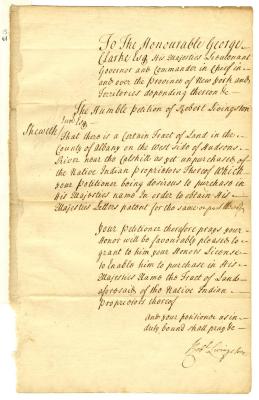 To The Honourable George
Clarke Esq His Majesties Lieutenant
Governor and Commander in Cheif in
and over the Province of New York and
Territories depending thereon &c
The Humble Petition of Robert Livingston
Junr Esq
Sheweth
That there is a Certain Tract of Land in the
County of Albany on the West side of Hudsons
River near the Catskill as yet unpurchased of
the Native Indian Proprietors Thereof Which
your Petitioner being desirous to purchase in
His Majesties name In order to obtain His
Majesties Letters patent for the same or part thereof
Your Petitioner therefore prays your
Honor will be favourably pleased to
grant to him your Honors License
to Enable him to purchase in His
Majesties Name the Tract of Land
aforesaid of the Native Indian
Proprietors thereof
And your petitioner as in
duty bound shall pray &c
Robt Livingston